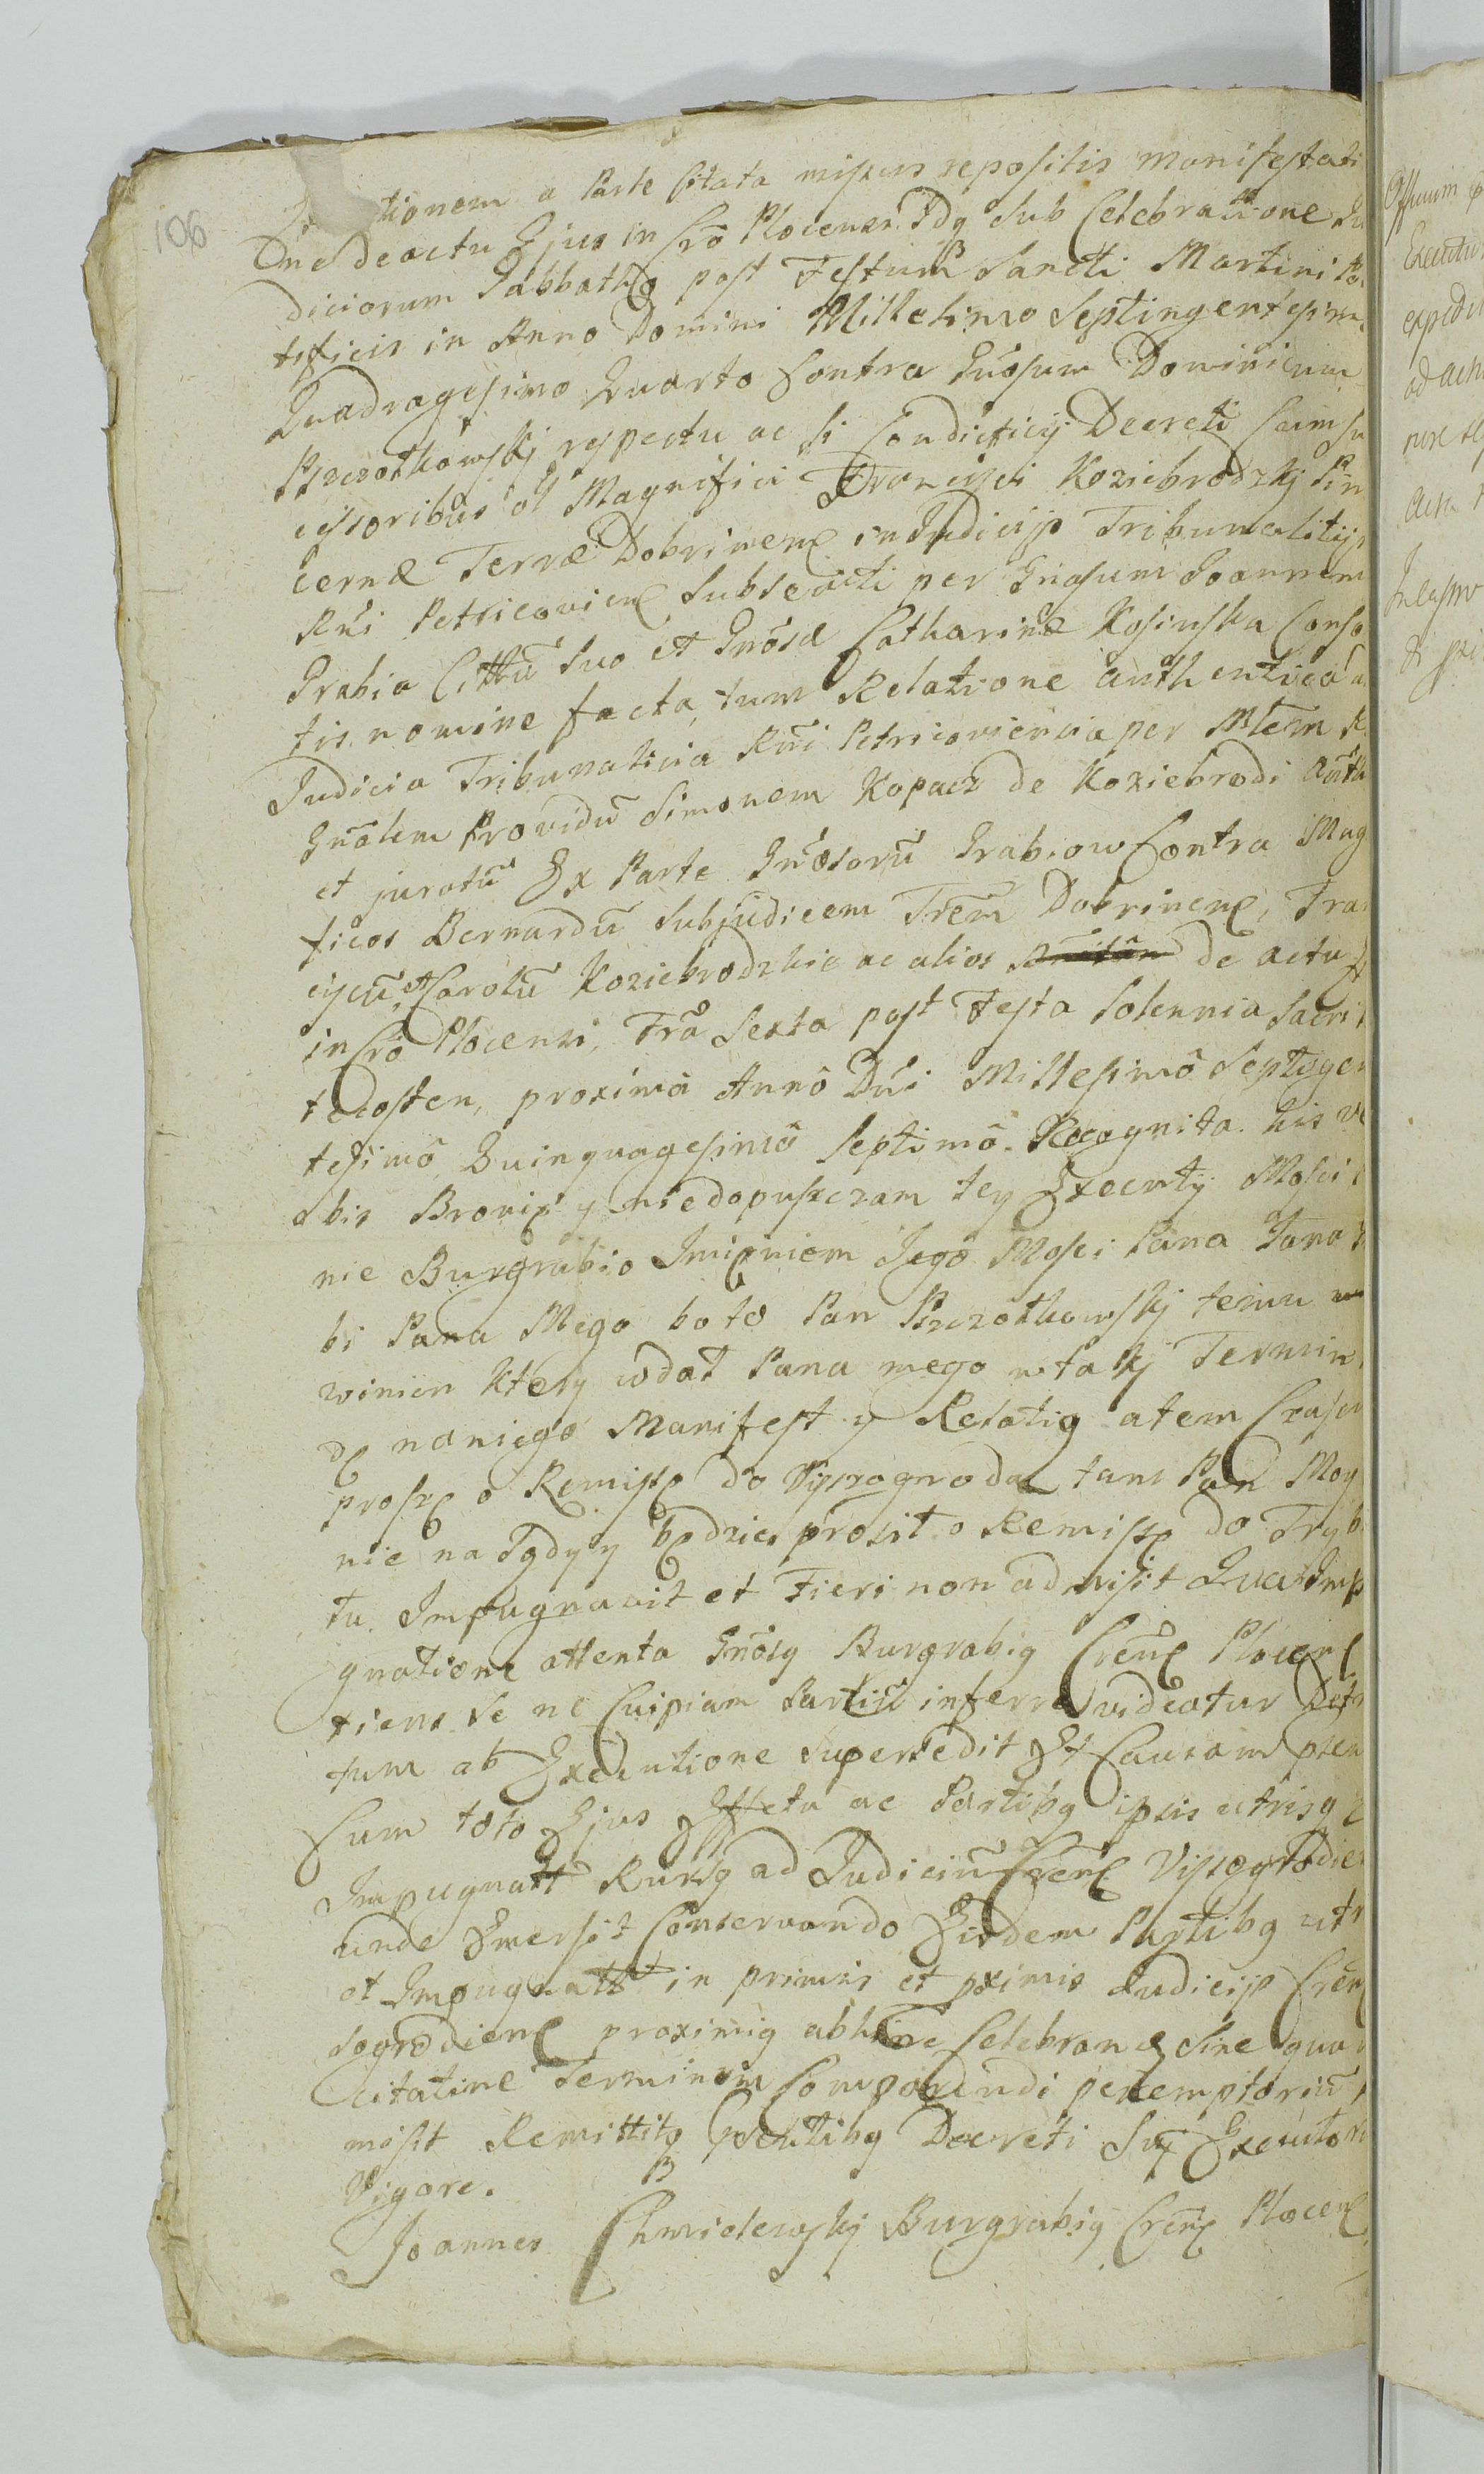 106
tionem a Parte Citata repositis manifestati
one de actu Ejus in Crō Plocensi Idq sub Celebratione Ju
diciorum Sabbatho post Festum Sancti Martini Po
tificis in Anno Domini Millesimo Septingentesimo
Quadragesimo Quarto Contra Gnōsum Dominicum
Pszczotkowskj respectu ac si Condicticij Decreti Cum su
cessoribus ol Magnifici Francisci Koziebrodzkj Pin
cernæ Terræ Dobrinen in Judicijs Tribunalitijs
Rni Petricovien Subsecuti per Gnosum Joannem
Grabia Cittū Suo et Gnōsæ Catharinæ Kosinska Conso
tis nomine facta, tum Relatione authentica a
Judicia Tribunalicia Rni Petricoviensia per Mtem R
Gnōlem Providū Simonem Kopacz de Koziebrodi auth
et juratū Ex Parte Gnōsorū Grabiow Contra Mag
ficos Bernardū Subjudicem Trēm Dobrinen, Fran
ciscū, et Carolū Koziebrodzkie ac alios de actu
in Crō Plocensi, Frā Sexta post Festa Solennia Sacri
tecosten, proximā Annō Dni Millesimō Septigen
tesimō Quinquagesimō Septimō. Recognita. his v
bis Bronię y niedopuszczam tey Executy Mości
nie Burgrabio Imięniem Jego Mości Pana Jana
bi Pana Mego bo to Pan Pszczotkowskj temu
winien ktory wdał Pana mego w takj Termin
dę naniego Manifest y Relatią atem
proszę o Remissę do Vyszogroda tam Pan Moy
nie na Tędy y będzie prosił o Remissę do Tryb
tu. Impugnavit et Fieri non admisit Qua Imp
gnatione attenta Gnōsq Burgrabiq Crēn Plocen
tiens Se ne Cuipiam Partiū inferre videatur Detr
tum ab Executione Supersedit Et Causam
Cum toto Ejus Effectu ac Partibq ipsis utrisq
Impugnatt Rursq ad Judiciū Crēn Vissogrodie
unde Emersit Conservando Eisdem Partibq
et Impugnatt in primis et pximis Judicijs Cren
sogrodien proximiq abhinc Celebran Sine qua
citatine Terminum Comparendi peremptoriū
misit Remittitq Decreti Sui
Vigore.
Joannes Chmielewskj Burgrabiq Crēn Plocen
Officium
expedi
ad actu
nere
acta